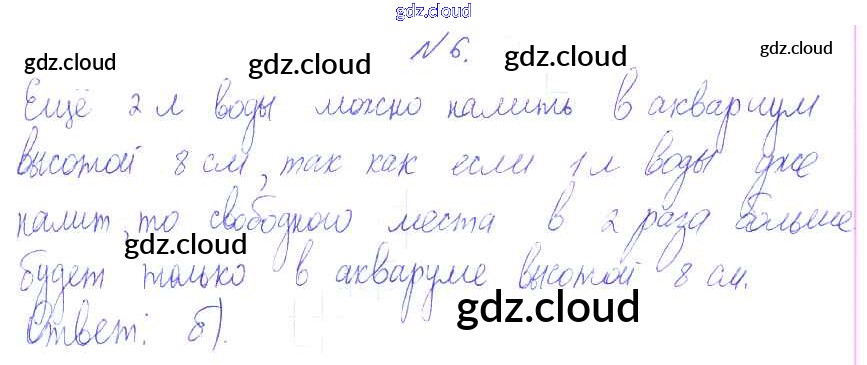 gdz.cloud
№ 6.
gdz.cloud gdz.cloud gdz.cloud
Ещё 2 л воды можно налить в аквариум
высотой 8 см, так как если 1 л воды уже
gdz.cloud gdz.cloud
налит, то свободного места в 2 раза больше
gdz.cloud gdz.cloud
будет только в аквариуме высотой 8 см.
gdz.cloud
Ответ: б).